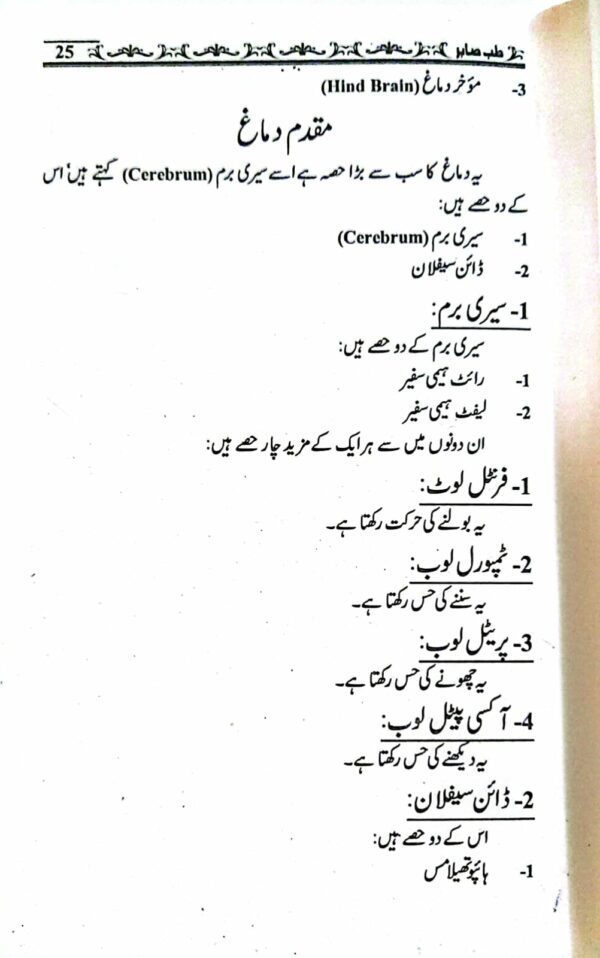 طب صابر 25
3- مؤخر دماغ (Hind Brain)
مقدم دماغ
یہ دماغ کا سب سے بڑا حصہ ہے اسے سیری برم (Cerebrum) کہتے ہیں' اس
کے دو حصے ہیں:
1- سیری برم (Cerebrum)
2- ڈائن سیفلان
1- سیری برم:
سیری برم کے دو حصے ہیں:
1- رائٹ ہیمی سفیر
2- لیفٹ ہیمی سفیر
ان دونوں میں سے ہر ایک کے مزید چار حصے ہیں:
1- فرنٹل لوٹ:
یہ بولنے کی حرکت رکھتا ہے۔
2- ٹمپورل لوب:
یہ سننے کی حس رکھتا ہے۔
3- پریٹل لوب:
یہ چھونے کی حس رکھتا ہے۔
4- آکسی پیٹل لوب:
یہ دیکھنے کی حس رکھتا ہے۔
2- ڈائن سیفلان:
اس کے دو حصے ہیں:
1- ہائپوتھیلامس